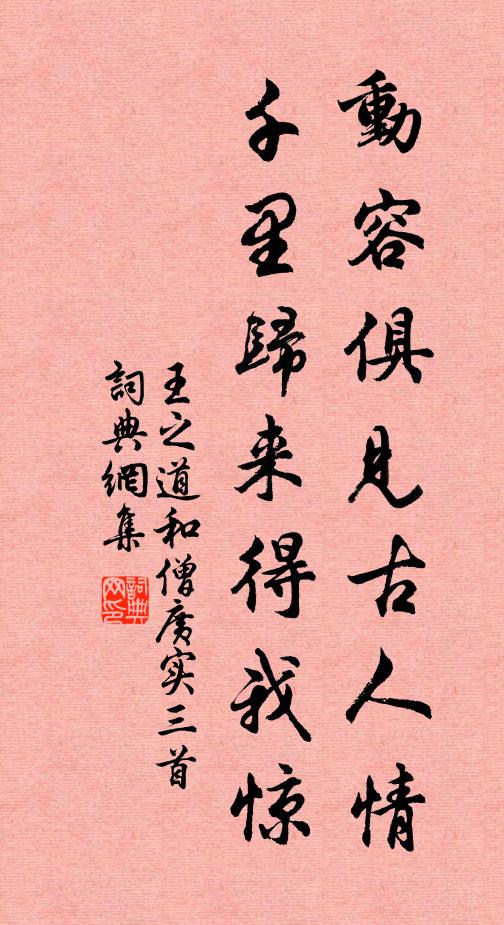 動容俱見古人情
千里歸来得我惊
王之道和僧广实三首
詞典網集
詞典网印